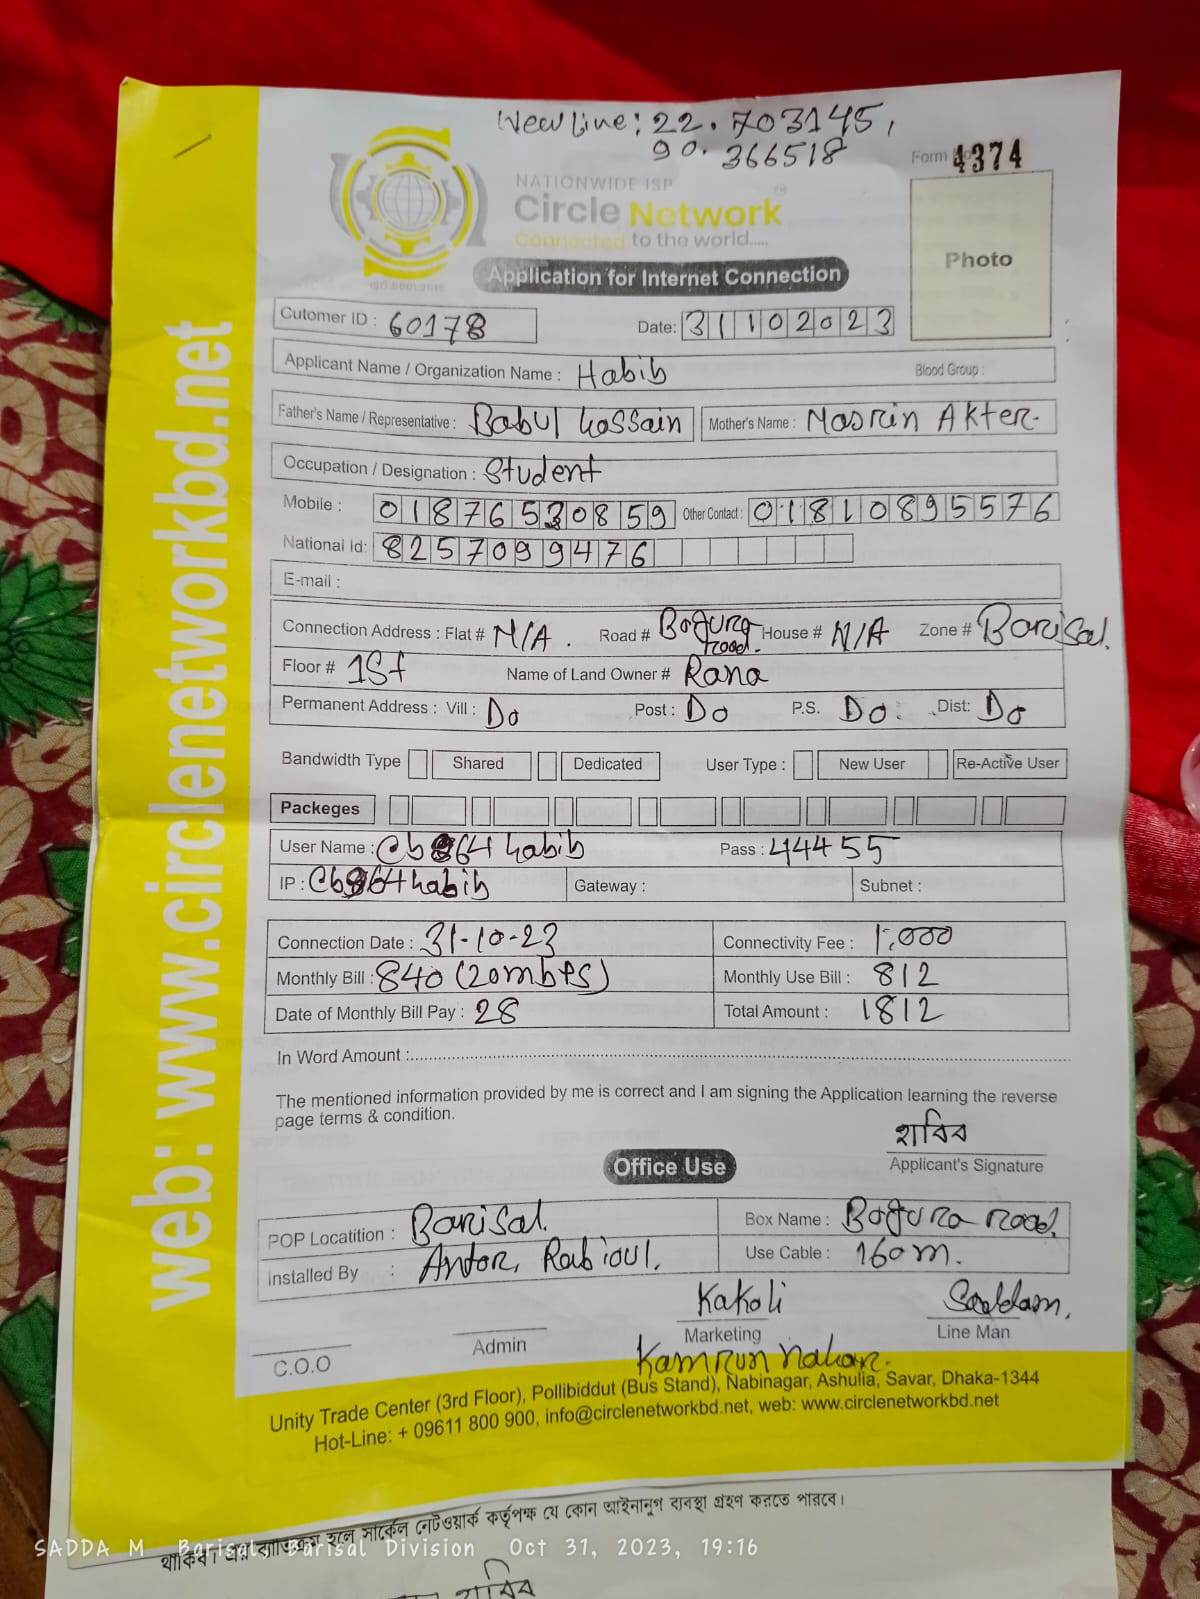 New line: 22.703145,
90.366518
Form No 4374
NATIONWIDE ISP
Circle Network
Connected to the world.....
ISO 9001:2015
Photo
Application for Internet Connection
Cutomer ID : 60178
Date: 31102023
Applicant Name / Organization Name : Habib
Blood Group :
Father's Name / Representative : Babul hossain
Mother's Name : Nasrin Akter.
Occupation / Designation : Student
Mobile : 01876530859
Other Contact : 01810895576
National Id: 8257099476
E-mail :
Connection Address : Flat # N/A . Road # Bogura road. House # N/A Zone # Barisal.
Floor # 1st Name of Land Owner # Rana
Permanent Address : Vill : Do Post : Do P.S. Do Dist: Do
Bandwidth Type Shared Dedicated User Type : New User Re-Active User
Packeges
User Name : Cb864habib Pass : 44455
IP : Cb864habib Gateway : Subnet :
Connection Date : 31-10-23 Connectivity Fee : 1,000
Monthly Bill : 840 (20mbps) Monthly Use Bill : 812
Date of Monthly Bill Pay : 28 Total Amount : 1812
In Word Amount :
The mentioned information provided by me is correct and I am signing the Application learning the reverse
page terms & condition.
হাবিব
Applicant's Signature
Office Use
POP Locatition : Barisal. Box Name : Bogura road.
Installed By : Antor, Rabioul. Use Cable : 160m.
C.O.O
Admin
Kakoli
Marketing
Kamrun nahar.
Saddam.
Line Man
Unity Trade Center (3rd Floor), Pollibiddut (Bus Stand), Nabinagar, Ashulia, Savar, Dhaka-1344
Hot-Line: + 09611 800 900, info@circlenetworkbd.net, web: www.circlenetworkbd.net
web: www.circlenetworkbd.net
থাকিব। এর ব্যতিক্রম হলে সার্কেল নেটওয়ার্ক কর্তৃপক্ষ যে কোন আইনানুগ ব্যবস্থা গ্রহণ করতে পারবে।
SADDA M Barisal, Barisal Division Oct 31, 2023, 19:16
হাবিব